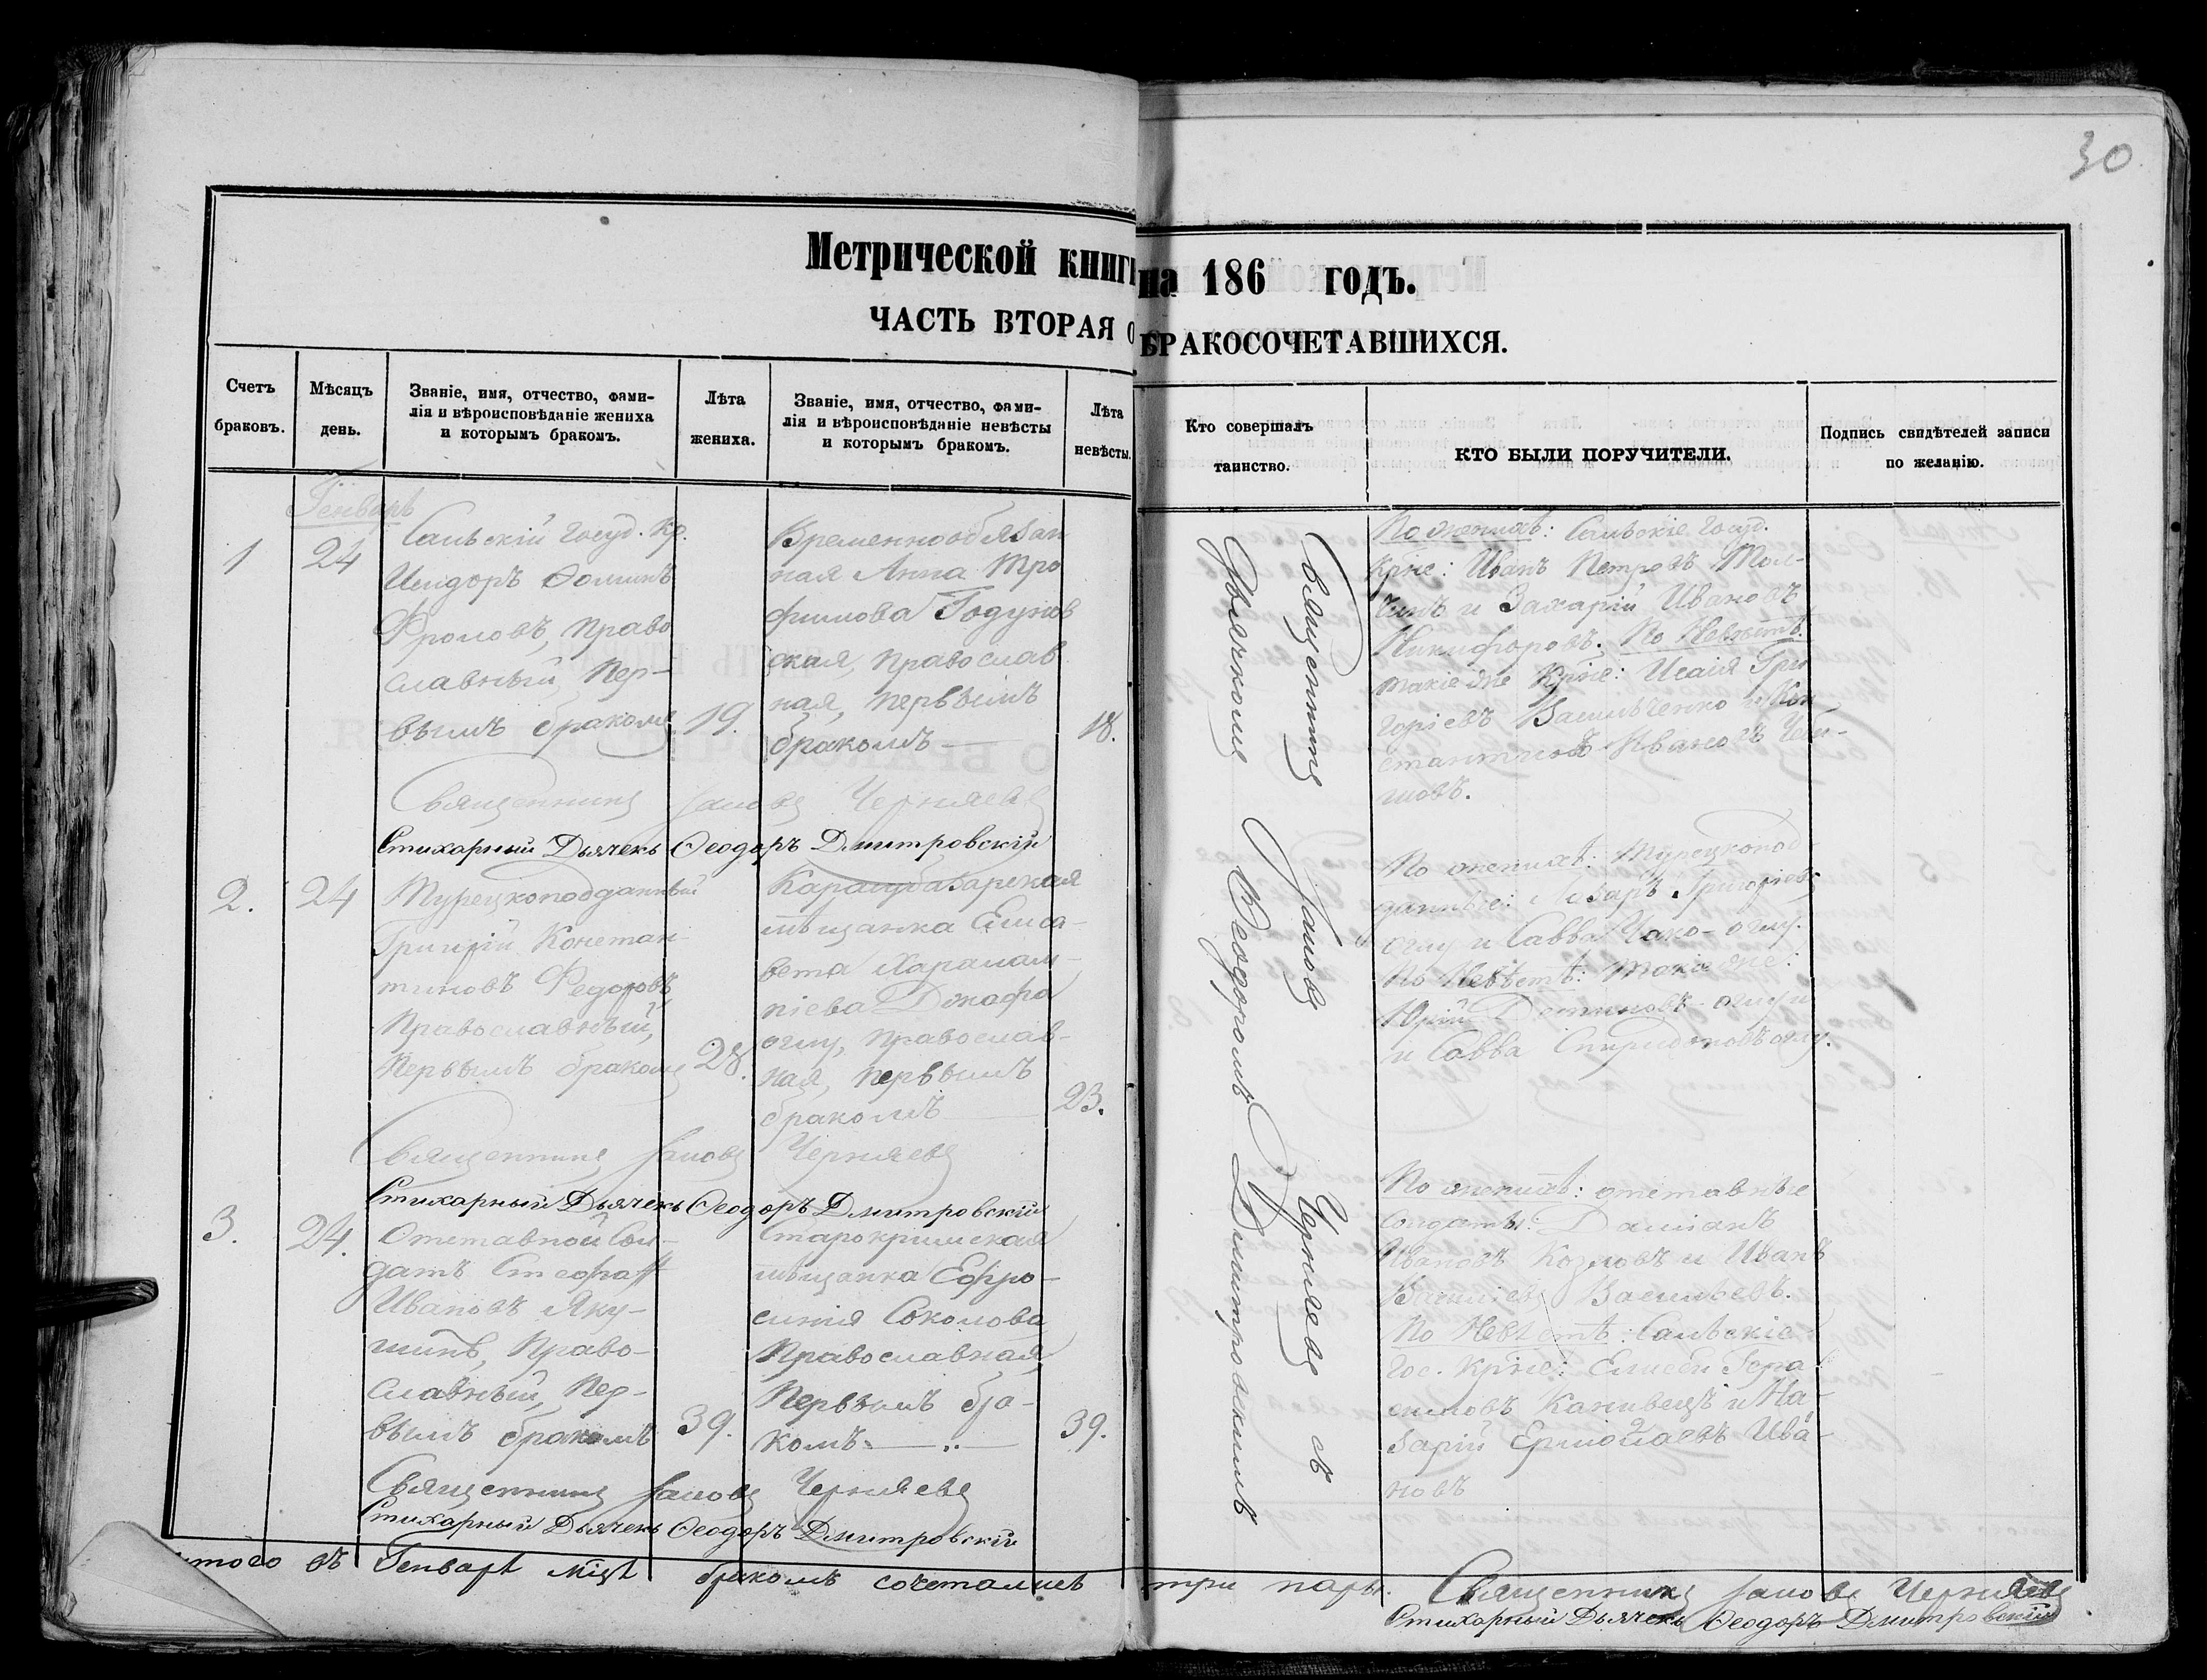 30
Метрической книги на 186 годъ.
ЧАСТЬ ВТОРАЯ О БРАКОСОЧЕТАВШИХСЯ.
Счетъ
браковъ.
Мѣсяцъ
день.
Званіе, имя, отчество, фами-
лія и вѣроисповѣданіе жениха
и которымъ бракомъ.
Лѣта
жениха.
Званіе, имя, отчество, фами-
лія и вѣроисповѣданіе невѣсты
и которымъ бракомъ.
Лѣта
невѣсты.
Кто совершалъ
таинство.
КТО БЫЛИ ПОРУЧИТЕЛИ.
Подпись свидѣтелей записи
по желанію.
Генварь
1
24
Госуд. Кр.
Исидоръ Ѳоминъ
Фроловъ, право
славный, Пер-
вымъ бракомъ
19.
Временнообязан
ная Анна Тро
фимова Годунов
ская, православ
ная, первымъ
бракомъ
18.
По женихѣ: Госуд.
Крне: Иванъ Петровъ
и Захарій Ивановъ
Никифоровъ. По Невѣстѣ.
такіе же Крне: Исаія Гри
горіевъ Васильченко и Кон
стантинъ Ивановъ
Священникъ Іаковъ Черняевъ
Стихарный Дьячекъ Ѳеодоръ Дмитровскій
2.
24
Турецкоподданный
Григорій Констан
тиновъ Федоровъ
Православный,
Первымъ бракомъ
28.
Карасубазарская
мѣщанка Елиса-
вета Харалам-
піева Джафа
оглу, православ-
ная, первымъ
бракомъ
23.
По женихѣ: Турецкопод
данные: Лазарь Григоріевъ
оглу и Савва Чако-оглу.
По Невѣстѣ: такіе же:
Юрій оглу и
и Савва Спиридоновъ оглу.
Священникъ Іаковъ Черняевъ
Стихарный Дьячекъ Ѳеодоръ Дмитровскій
3.
24.
Отставной Сол-
датъ Стефан
Ивановъ Яку-
шинъ, Право-
славный, Пер-
вымъ бракомъ
39.
Старокрымская
мѣщанка Ефро-
синія Соколова
Православная,
Первымъ бра-
комъ.
39.
По женихѣ: отставные
Солдаты: Даміанъ
Ивановъ Козловъ и Иванъ
Василіевъ Васильевъ.
По Невѣстѣ:
Гос. Крне: Елисей Гера
симовъ Канивецъ и На-
зарій Ермолаевъ Ива-
новъ
Священникъ Іаковъ Черняевъ
Стихарный Дьячекъ Ѳеодоръ Дмитровскій
Священникъ Іаковъ Черняевъ съ
Дьячкомъ Ѳеодоромъ Дмитровскимъ
итого въ Генварѣ мцѣ бракомъ сочеталис три пары.
Священникъ Іаковъ Черняевъ
Стихарный Дьячекъ Ѳеодоръ Дмитровскій